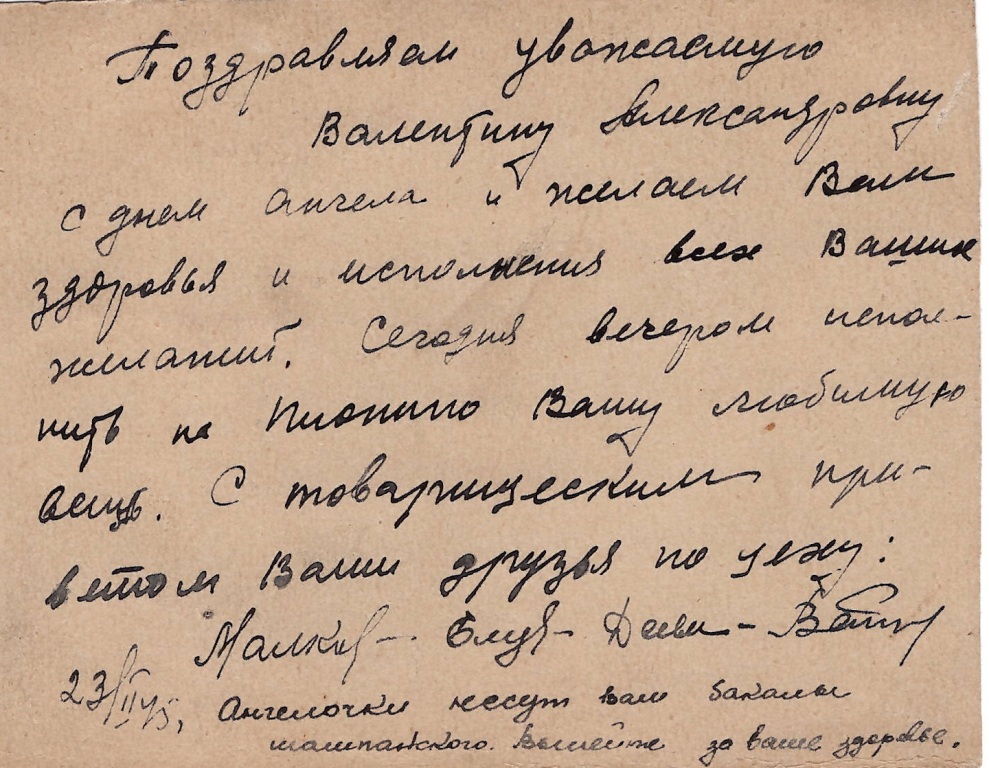 Поздравляем уважаемую
Валентину Александровну
с днем ангела и желаем Вам
здоровья и исполнения всех Ваших
желаний. Сегодня вечером испол-
нить на пианино Вашу любимую
вещь. С товарищеским при-
ветом Ваши друзья по цеху:
23/II 45,
Ангелочки несут вам бакалы
шампанского. Выпейте за ваше здоровье.